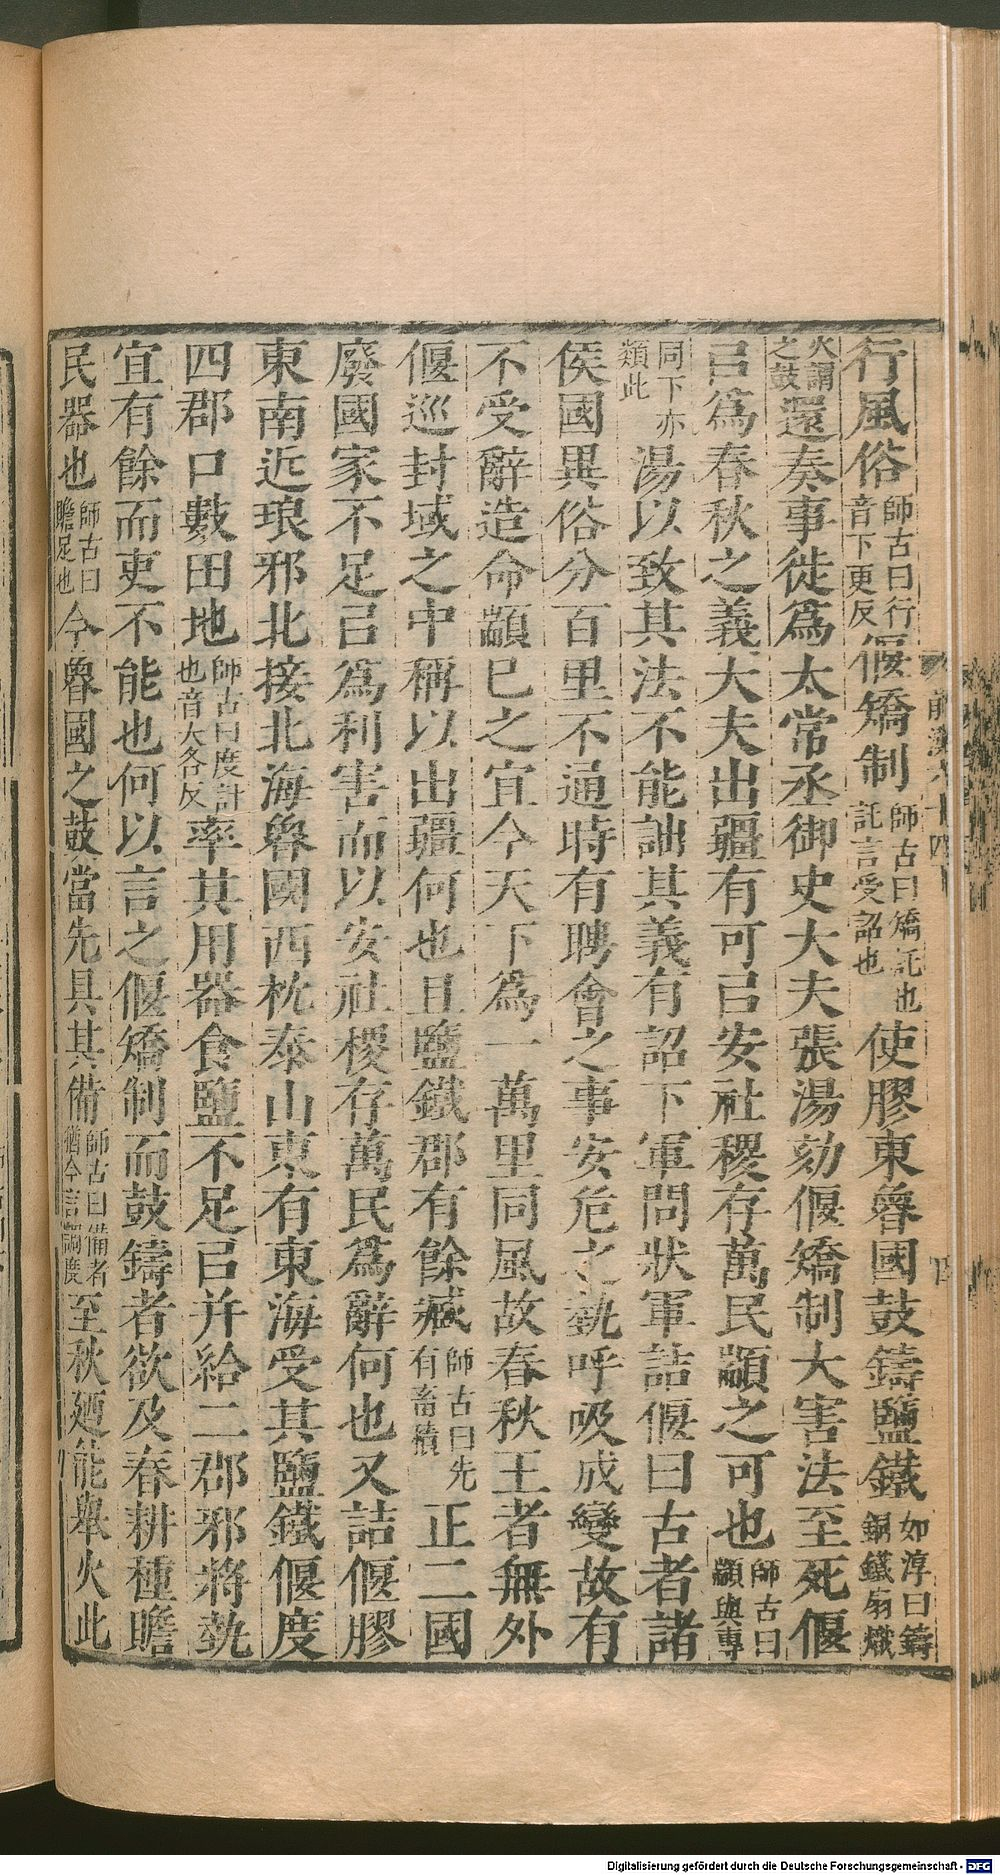 行風俗師古曰行音下更反偃矯制師古曰矯託也託言受詔也使膠東魯國鼓鑄鹽鐵如淳曰鑄銅鐵扇熾
火謂之鼓還奏事徙爲太常丞御史大夫張湯劾偃矯制大害法至死偃
㠯爲春秋之義大夫出疆有可㠯安社稷存萬民顓之可也師古曰顓與專
同下亦類此湯以致其法不能詘其義有詔下軍問狀軍詰偃曰古者諸
侯國異俗分百里不通時有聘會之事安危之埶呼吸成變故有
不受辭造命顓已之宜今天下爲一萬里同風故春秋王者無外
偃巡封域之中稱以出疆何也且鹽鐵郡有餘臧師古曰先有畜積正二國
廢國家不足㠯爲利害而以安社稷存萬民爲辭何也又詰偃膠
東南近琅邪北接北海魯國西枕泰山東有東海受其鹽鐵偃度
四郡口數田地師古曰度計也音大各反率其用器食鹽不足㠯并給二郡邪將埶
宜有餘而吏不能也何以言之偃矯制而鼓鑄者欲及春耕種贍
民器也師古曰贍足也今魯國之鼓當先具其備師古曰備者猶今言調度至秋廼能舉火此
Digitalisierung gefördert durch die Deutsche Forschungsgemeinschaft - DFG